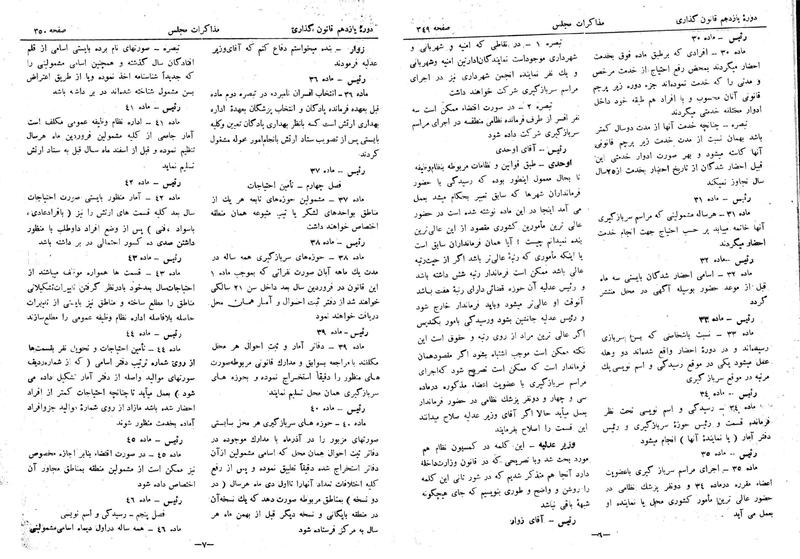 دورهٔ یازدهم قانون گذاری
مذاکرات مجلس
صفحه ۳۴۹
رئیس - ماده ۳۰
ماده ۳۰ - افرادی که بر طبق ماده فوق بخدمت
احضار میگردند بمحض رفع احتیاج از خدمت مرخص
و مدتی را که خدمت نموده‌اند جزء دوره زیر پرچم
قانونی آنان محسوب و با افراد هم طبقه خود داخل
ادوار مختلفه خدمتی میگردند
تبصره - چنانچه خدمت آنها از مدت دوسال کمتر
باشد بهمان نسبت از مدت خدمت زیر پرچم قانونی
آنها کاسته میشود و بهر صورت ادوار خدمتی این
قبیل احضار شدگان از تاریخ احضار بخدمت از ۲۵ سال
تجاوز نمیکند
رئیس - ماده ۳۱
ماده ۳۱ - هر ساله مشمولینی که مراسم سربازگیری
آنها خاتمه مییابد بر حسب احتیاج جهت انجام خدمت
احضار میگردند
رئیس - ماده ۳۲
ماده ۳۲ - اسامی احضار شدگان بایستی سه ماه
قبل از موعد حضور بوسیله آگهی در محل منتشر
گردد
رئیس - ماده ۳۳
ماده ۳۳ - نسبت باشخاصی که بسن سربازی
رسیده‌اند و در احضار واقع شده‌اند دو وهله
عمل میشود یکی در موقع رسیدگی و اسم نویسی یک
مرتبه در موقع سربازگیری
رئیس - ماده ۳۴
ماده ۳۴ - رسیدگی و اسم نویسی تحت نظر
فرمانده قسمت و رئیس حوزه سربازگیری و رئیس
دفتر آمار ( یا نمایندهٔ آنها ) انجام میشود
رئیس - ماده ۳۵
ماده ۳۵ - اجرای مراسم سربازگیری باعضویت
اعضاء مقرره درماده ۳۴ و دونفر پزشک نظامی در
حضور عالی ترین مأمور کشوری محل یا نماینده او
بعمل می آید
تبصره ۱ - در نقاطی که امنیه و شهربانی و
شهرداری موجود است نمایندگان ادارتین امنیه و شهربانی
و یک نفر نماینده انجمن شهرداری نیز در اجرای
مراسم سربازگیری شرکت خواهند داشت
تبصره ۲ - در صورت اقتضاء ممکن است سه
نفر افسر از طرف فرمانده نظامی منطقه در اجرای مراسم
سربازگیری شرکت داده شود
رئیس - آقای اوحدی
اوحدی - طبق قوانین و نظامات مربوطه بنظام وظیفه
تا بحال معمول اینطور بوده که رسیدگی با حضور
فرمانداران شهرها که سابق تعبیر بحکام میشد بعمل
می آمد اینجا در این ماده نوشته شده است در حضور
عالی ترین مأمورین کشوری مقصود از این عالی‌ترین
بنده نمیدانم چیست ؟ آیا همان فرمانداران سابق است
یا اینکه مأموری که رتبهٔ عالی‌تر باشد اگر از حیث رتبه
عالی باشد ممکن است فرماندار رتبه شش داشته باشد
و رئیس عدلیه آن حوزه قضائی دارای رتبهٔ هفت باشد
آنوقت او عالی‌تر میشود وباید فرماندار خارج شود
و رئیس عدلیه جانشین بشود ورسیدگی باینامور بکند پس
اگر عالی ترین مراد از روی رتبه و حقوق است این
نکته ممکن است موجب اشتباه بشود اگر مقصود همان
فرماندار است که ممکن است تصریح شود که اجرای
مراسم سربازگیری با عضویت اعضاء مذکوره درماده
سی و چهار و دونفر پزشک نظامی در حضور فرماندار
بعمل میآید حالا اگر آقای وزیر عدلیه صلاح میدانند
این قسمت را اصلاح بفرمایند
وزیر عدلیه - این کلمه در کمیسیون نظام هم
مورد بحث شد وبا تصریحی که در قانون وزارت داخله
دارد آنجا هم متذکر شدیم که در شور ثانی این کلمه
را روشن و واضح و طوری بنویسیم که جای هیچگونه
شبهه باقی نباشد
رئیس - آقای زوار
-۶-
دورهٔ یازدهم قانون گذاری
مذاکرات مجلس
صفحه ۳۵۰
زوار - بنده میخواستم دفاع کنم که آقای وزیر
عدلیه فرمودند
رئیس - ماده ۳۶
ماده ۳۶ - انتخاب افسران نامبرده در تبصره دوم ماده
قبل بعهده فرمانده پادگان و انتخاب پزشگان بعهدهٔ اداره
بهداری ارتش است که بانظر بهداری پادگان تعیین وکلیه
بایستی پس از تصویب ستاد ارتش بانجام امور محوله مشغول
گردند
رئیس - ماده ۳۷
فصل چهارم - تأمین احتیاجات
ماده ۳۷ - مشمولین حوزه‌های تابعه هر یک از
مناطق بواحدهای لشکر یا تیپ متبوعه همان منطقه
اختصاص خواهند داشت
رئیس - ماده ۳۸
ماده ۳۸ - حوزه‌های سربازگیری همه ساله در
مدت یک ماهه آبان صورت نفراتی که بموجب ماده ۱
این قانون در فروردین سال بعد داخل سن ۲۱ سالگی
خواهند شد از دفتر ثبت احوال و آمار همان محل
دریافت خواهند نمود
رئیس - ماده ۳۹
ماده ۳۹ - دفاتر آمار و ثبت احوال هر محل
مکلفند با مراجعه بسوابق و مدارک قانونی مربوطه صورت
های منظمی را دقیقاً استخراج نموده و بحوزه های
سربازگیری همان محل تسلیم نمایند
رئیس - ماده ۴۰
ماده ۴۰ - حوزه های سربازگیری هر محل بایستی
صورتهای مزبور را در آذرماه با مدارک موجوده در
دفاتر ثبت احوال همان محل که اسامی مشمولین از آن
دفاتر استخراج شده دقیقاً تطبیق نموده و پس از رفع
کلیه اختلافات تعداد آنها را تا اول دی ماه هر سال ( در
دو نسخه ) بمناطق مربوطه صورت دهد که یک نسخه آن
در منطقه بایگانی و نسخه دیگر قبل از بهمن ماه هر
سال به مرکز فرستاده شود
تبصره - صورتهای نام برده بایستی اسامی از قلم
افتادگان سال گذشته و همچنین اسامی مشمولینی را
که جدیداً شناسنامه اخذ نموده ویا از طریق اعتراض
بسن مشمول شناخته شده‌اند در بر داشته باشد
رئیس - ماده ۴۱
ماده ۴۱ - اداره نظام وظیفه عمومی مکلف است
آمار جامعی از کلیه مشمولین فروردین ماه هر سال
تنظیم نموده و قبل از اسفند ماه سال قبل به ستاد ارتش
تسلیم نماید
رئیس - ماده ۴۲
ماده ۴۲ - آمار منظور بایستی صورت احتیاجات
سال بعد کلیه قسمت های ارتش را نیز ( بافراد عادی ،
باسواد ، فنی ) پس از وضع افراد داوطلب با منظور
داشتن صدی ده کسور احتمالی در بر داشته باشد
رئیس - ماده ۴۳
ماده ۴۳ - قسمت ها همواره موظف میباشند از
احتیاجات سال بعد خود بادرنظر گرفتن تغییرات تشکیلاتی
مناطق را مطلع ساخته و مناطق نیز بایستی از تغییرات
حاصله بلافاصله اداره نظام وظیفه عمومی را مطلع سازند
رئیس - ماده ۴۴
ماده ۴۴ - تأمین احتیاجات و تحویل نفر بقسمت‌ها
از روی شماره ترتیب دفتر اسامی ( که از شماره ردیف
صورتهای موالید واصله از دفتر آمار تشکیل داده می
شود ) بعمل میآید تا چنانچه احتیاجات کمتر از افراد
احضار شده باشد مازاد از روی شمارهٔ موالید جزو افراد
آماده بخدمت منظور شوند
رئیس - ماده ۴۵
ماده ۴۵ - در صورت اقتضاء بنابر اجازه مخصوص
نیز ممکن است از مشمولین منطقه بمناطق مجاور آن
اختصاص داده شود
رئیس - ماده ۴۶
فصل پنجم - رسیدگی و اسم نویسی
ماده ۴۶ - همه ساله در اول دیماه اسامی مشمولینی
-۷-